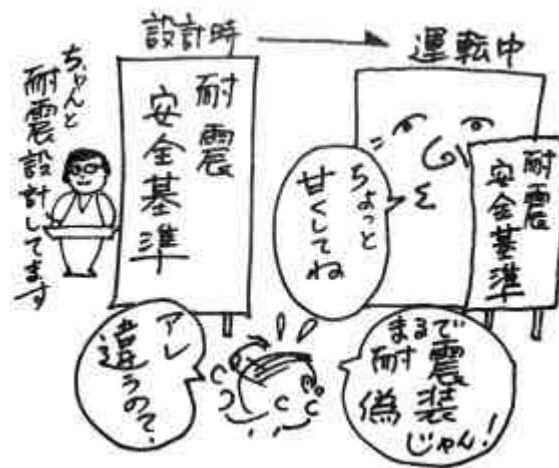 設計時
運転中
ちゃんと
耐震設計してます
耐震
安全基準
ちょっと
甘くしてね
耐震
安全基準
アレ
違うので、
まるで
耐震
偽装
じゃん!